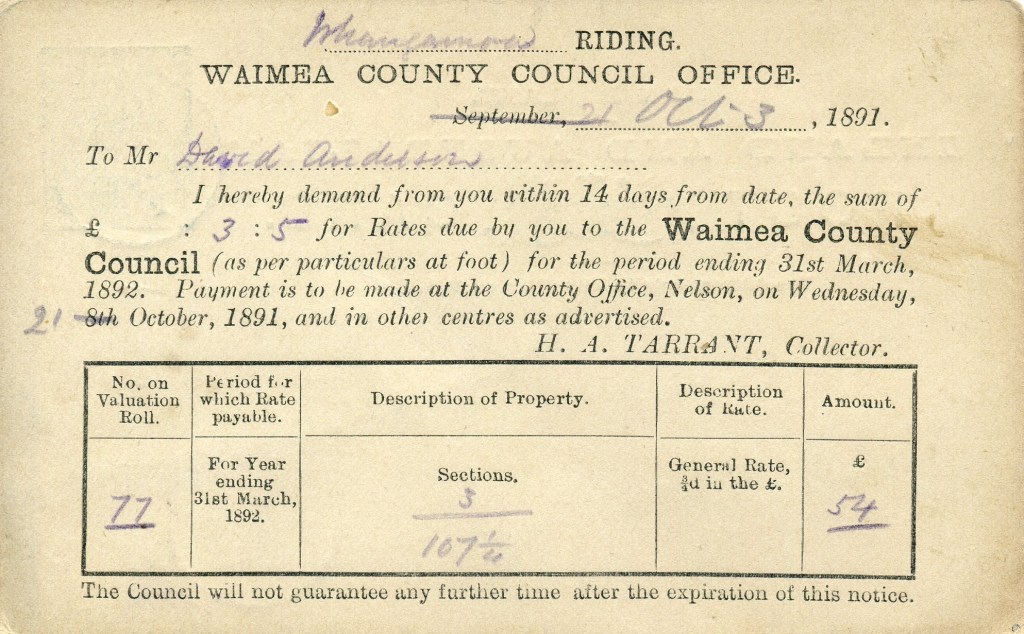 Whangamoa RIDING.
WAIMEA COUNTY COUNCIL OFFICE.
September, 21 Oct 3, 1891.
To Mr David Anderson
I hereby demand from you within 14 days from date, the sum of
£ : 3 : 5 for Rates due by you to the Waimea County
Council (as per particulars at foot) for the period ending 31st March,
1892. Payment is to be made at the County Office, Nelson, on Wednesday,
21 8th October, 1891, and in other centres as advertised.
H. A. TARRANT, Collector.
No. on Valuation Roll.
Period for which Rate payable.
Description of Property.
Description of Rate.
Amount.
77
For Year ending 31st March, 1892.
Sections.
3
107¼
General Rate, ¾d in the £.
£
54
The Council will not guarantee any further time after the expiration of this notice.